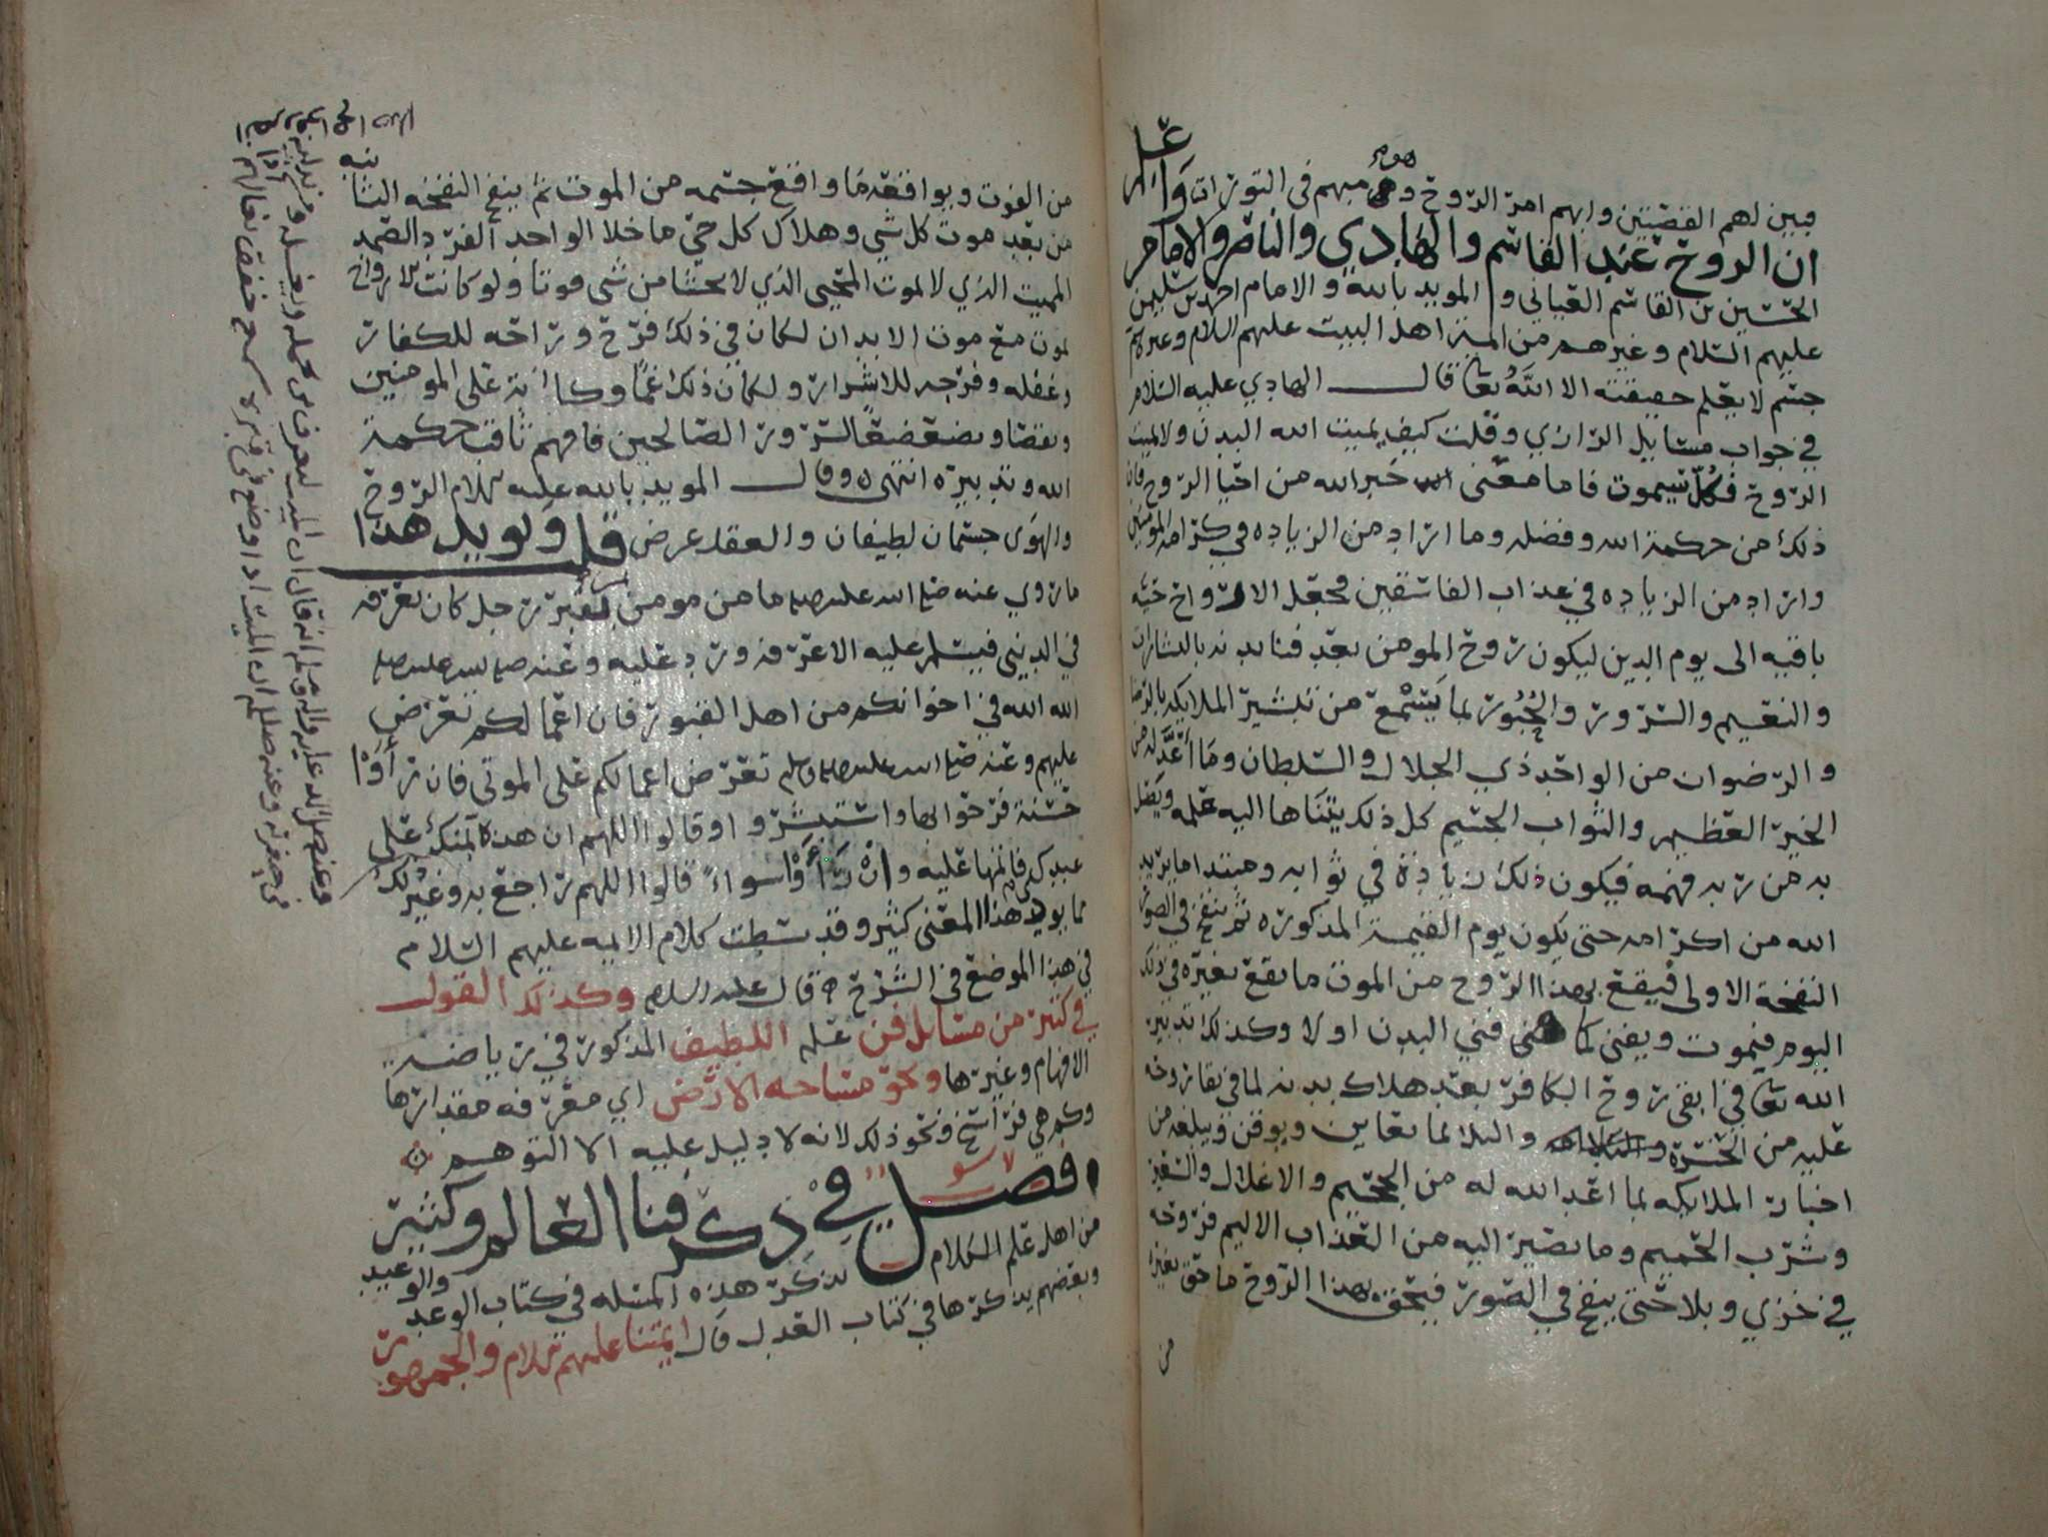 فبين لهم القضيتين وابهم امر الروح وهو مبهم في التوراة واعلم
ان الروح عند القاسم والهادي والناصر والامام
الحسين بن القاسم العياني والمويد بالله والامام احمد بن سليمن
عليهم السلام وغيرهم من ايمة اهل البيت عليهم السلام وغيرهم
جسم لا يعلم حقيقته الا الله تعالى قال الهادي عليه السلام
في جواب مسايل الرازي وقلت كيف يميت الله البدن ولا يميت
الروح فكل سيموت فاما معنى خبر الله من احيا الروح فان
ذلك من حكمة الله وفضله وما اراد من الزياده في كرامة المومنين
واراد من الزياده في عذاب الفاسقين فجعل الارواح حيه
باقيه الى يوم الدين ليكون روح المومن بعد فنا بدنه بالبشارات
والنعيم والسرور والحبور بما يسمع من تبشير الملايكه بالرضا
والرضوان من الواحد ذي الجلال والسلطان وما اعد له من
الخير العظيم والثواب الجسيم كل ذلك يتناها اليه علمه ويصل
به من ربه فهمه فيكون ذلك زيادة في ثوابه ومبتدا ما يريد
الله من اكرامه حتى يكون يوم القيمة المذكوره ثم ينفخ في الصور
النفخة الاولى فيقع بهذا الروح من الموت ما يقع بغيره في ذلك
اليوم فيموت ويفنى كما فني البدن اولا وكذلك تدبير
الله تعالى في ابقى روح الكافر بعد هلاك بدنه لما في بقا روحه
عليه من الحسرة والبلا بما يعاين ويوقن ويبلغه من
اخبار الملايكه بما اعد الله له من الجحيم والاغلال والسعير
وشرب الحميم وما يصير اليه من العذاب الاليم فروحه
في خزي وبلا حتى ينفخ في الصور فيحق بهذا الروح ما حق بغيرها
من
من الفوت ويوافقه ما وافق جسمه من الموت ثم ينفخ النفخه الثانيه
من بعد موت كل شي وهلاك كل حي ما خلا الواحد الفرد الصمد
المميت الذي لا يموت المحيي الذي لا يخشا من شي فوتا ولو كانت الارواح
تموت مع موت الابدان لكان في ذلك فرح وراحه للكفار
وغفله وفرجه للاشرار ولكان ذلك غما وكابة على المومنين
ونقصا وتضعضعا لسرور الصالحين فافهم ثاقب حكمة
الله وتدبيره انتهى وقال المويد بالله عليه السلام الروح
والهوى جسمان لطيفان والعقل عرض قلت ويويد هذا
ما روي عنه صلى الله عليه وسلم ما من مومن يمر بقبر رجل كان يعرفه
في الدنيى فيسلم عليه الا عرفه ورد عليه وعنه صلى الله عليه وسلم
الله الله في اخوانكم من اهل القبور فان اعمالكم تعرض
عليهم وعنه صلى الله عليه واله وسلم تعرض اعمالكم على الموتى فان رأوا
حسنة فرحوا بها واستبشروا وقالوا اللهم ان هذه نعمتك على
عبدك فاتمها عليه وان رأوا سواءً قالوا اللهم راجع به وغير ذلك
مما يويد هذا المعنى كثير وقد بسطت كلام الايمه عليهم السلام
في هذا الموضع في الشرح قال عليه السلام وكذلك القول
في كثير من مسايل فن علم اللطيف المذكور في رياضة
الافهام وغيرها ونحو مساحه الارض اي معرفه مقدارها
وكم هي فراسخ ونحو ذلك لانه لا دليل عليه الا التوهم
فصل في ذكر فنا العالم وكثير
من اهل علم الكلام يذكر هذه المسله في كتاب الوعد والوعيد
وبعضهم يذكرها في كتاب العدل قال ايمتنا عليهم السلام والجمهور